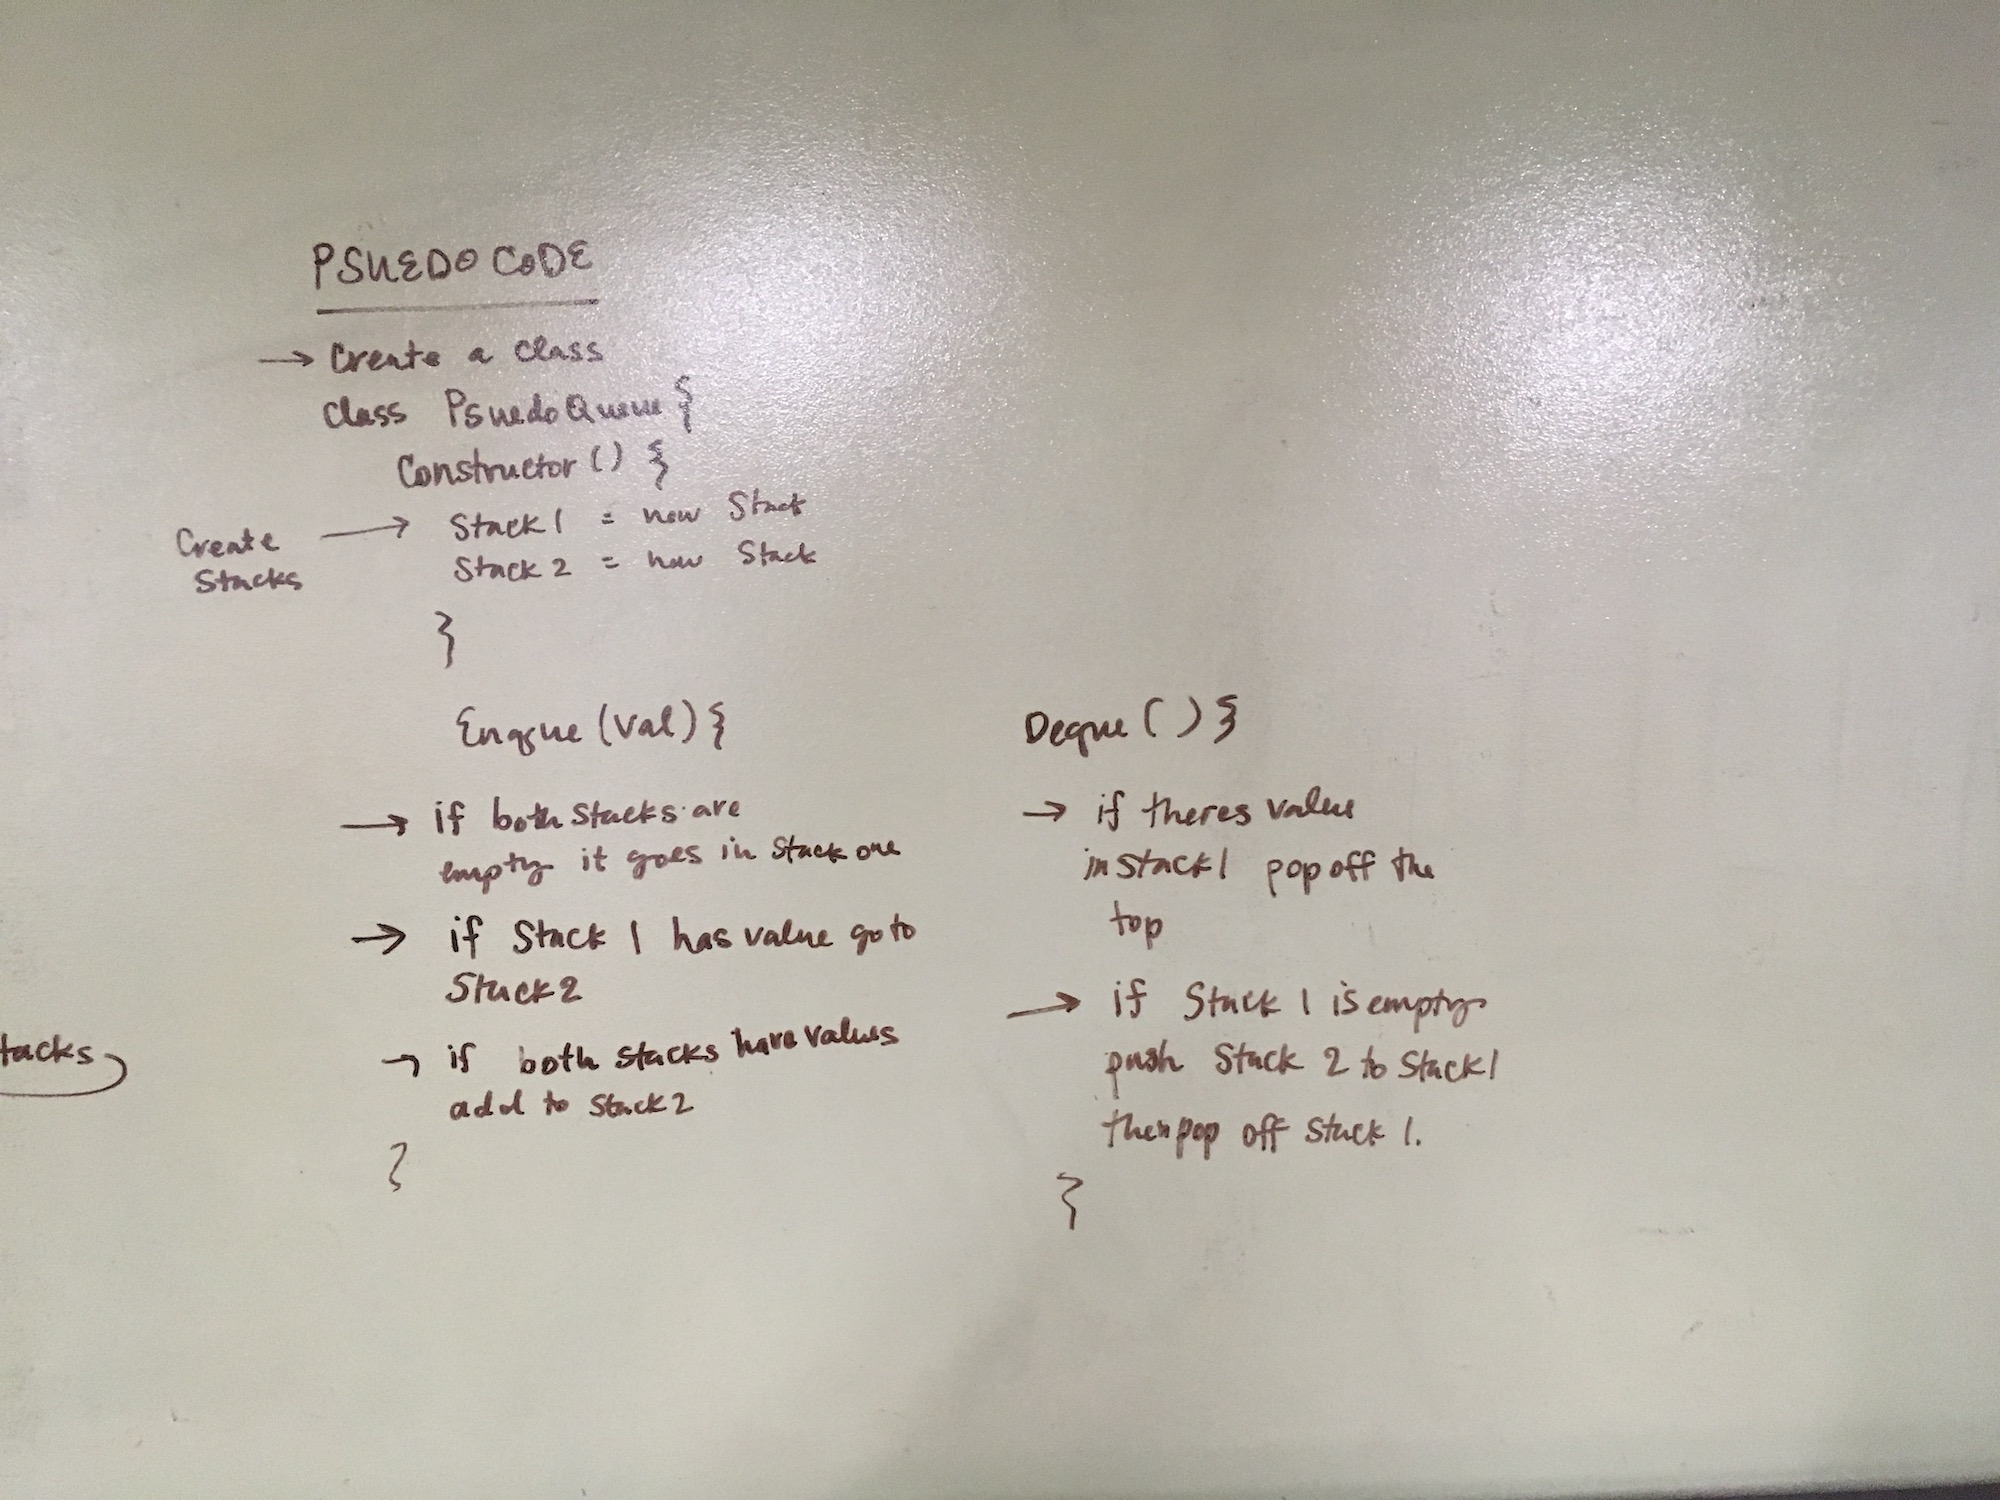 PSUEDO CODE
→ Create a class
class PsuedoQueue {
Constructor () {
Create Stacks → Stack 1 = new Stack
Stack 2 = new Stack
}
Enqque (val) {
→ if both stacks are
empty it goes in stack one
→ if Stack 1 has value go to
Stack 2
→ if both stacks have values
add to stack 2
}
Deque ( ) }
→ if theres value
in stack 1 pop off the
top
→ if Stack 1 is empty
push Stack 2 to Stack 1
then pop off stack 1.
}
tacks